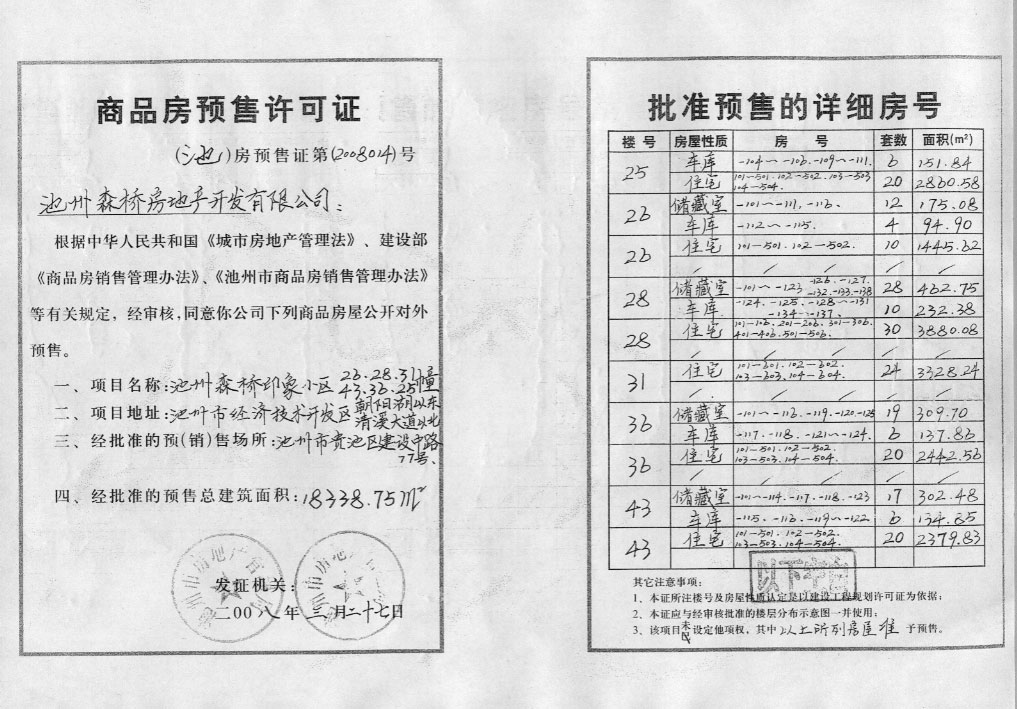 商品房预售许可证
(池)房预售证第(2008014)号
池州森桥房地产开发有限公司:
根据中华人民共和国《城市房地产管理法》、建设部
《商品房销售管理办法》、《池州市商品房销售管理办法》
等有关规定,经审核,同意你公司下列商品房屋公开对外
预售。
一、项目名称:池州森桥印象小区26.28.31幢
43.36.25
二、项目地址:池州市经济技术开发区朝阳湖以东
清溪大道以北
三、经批准的预(销)售场所:池州市贵池区建设中路
77号.
四、经批准的预售总建筑面积:18338.75㎡
发证机关:
二00八年三月二十七日
批准预售的详细房号
楼号 房屋性质 房号 套数 面积(m²)
25 车库 -104～-106.-109～-111. 6 151.84
住宅 101-501.102-502.103-503 104-504. 20 2860.58
26 储藏室 -101～-111,-116. 12 175.08
车库 -112～-115. 4 94.90
26 住宅 101-501.102-502. 10 1445.62
/ / / /
28 储藏室 -101～-123 -126.-127. -132.-133.-138 28 462.75
车库. -124.-125.-128～-131 -134-·-137. 10 232.38
28 住宅 101-106.201-206.301-306. 401-406.501-506. 30 3880.08
/ / / /
31 住宅 101-601.102-602. 103-603.104-604. 24 3328.24
/ / / /
36 储藏室 -101～-116.-119.-120-125 19 309.70
车库 -117.-118.-121～-124. 6 137.86
36 住宅 101-501.102-502. 103-503.104-504. 20 2442.56
/ / / /
43 储藏室 -101～-114.-117.-118.-123 17 302.48
车库 -115.-116.-119～-122 6 134.65
43 住宅 101-501.102-502. 103-503.104-504. 20 2379.83
以下空白
其它注意事项:
1、本证所注楼号及房屋性质认定是以建设工程规划许可证为依据;
2、本证应与经审核批准的楼层分布示意图一并使用;
3、该项目未设定他项权,其中以上所列房屋准予预售。